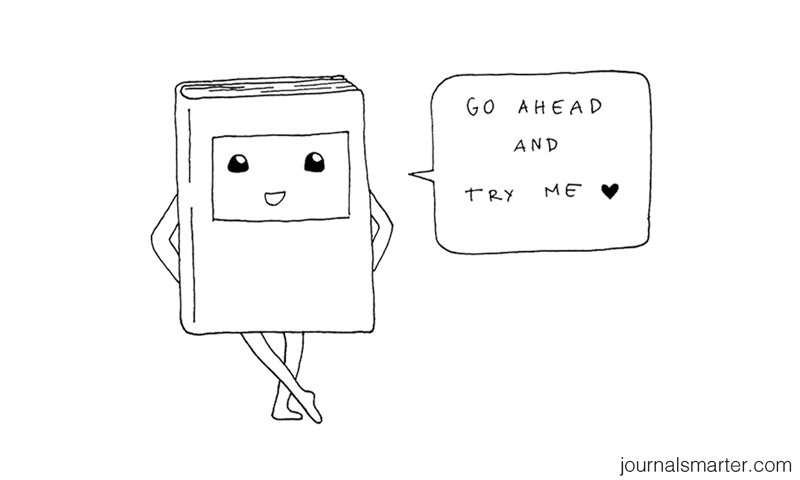 GO AHEAD
AND
TRY ME ♥
journalsmarter.com